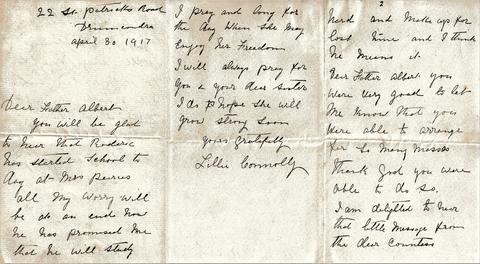 22 St. Patricks Road
Drumcondra
April 30 1917
Dear Father Albert
You will be glad
to hear that Roderic
has started School to
day at Mrs
all my worry will
be at an end now
he has promised me
that he will study
2
hard and make up for
lost time and I think
he means it.
Dear Father Albert you
were very good to let
me know that you
were able to arrange
for so many masses
Thank God you were
able to do so.
I am delighted to hear
that little message from
the dear Countess
I pray and long for
the day when she may
enjoy her Freedom
I will always pray for
you & your dear sister
I do hope she will
grow strong soon
yours gratefully
Lillie Connolly